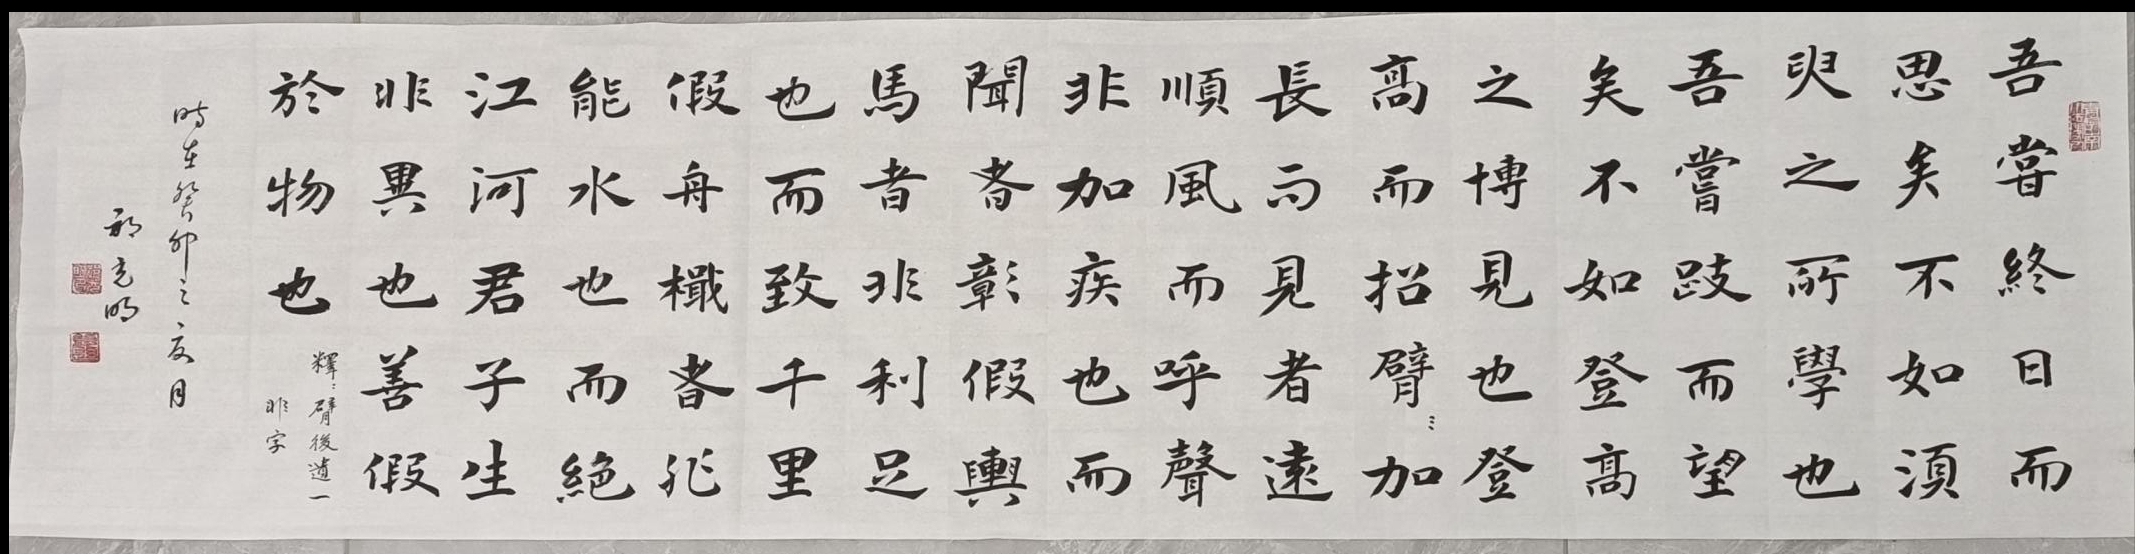 吾嘗終日而
思矣不如須
臾之所學也
吾嘗跂而望
矣不如登高
之博見也登
高而招臂加
長而見者遠
順風而呼聲
非加疾也而
聞者彰假輿
馬者非利足
也而致千里
假舟檝者非
能水也而絕
江河君子生
非異也善假
於物也
釋:臂後遺一
非字
時在癸卯之夏月
克明